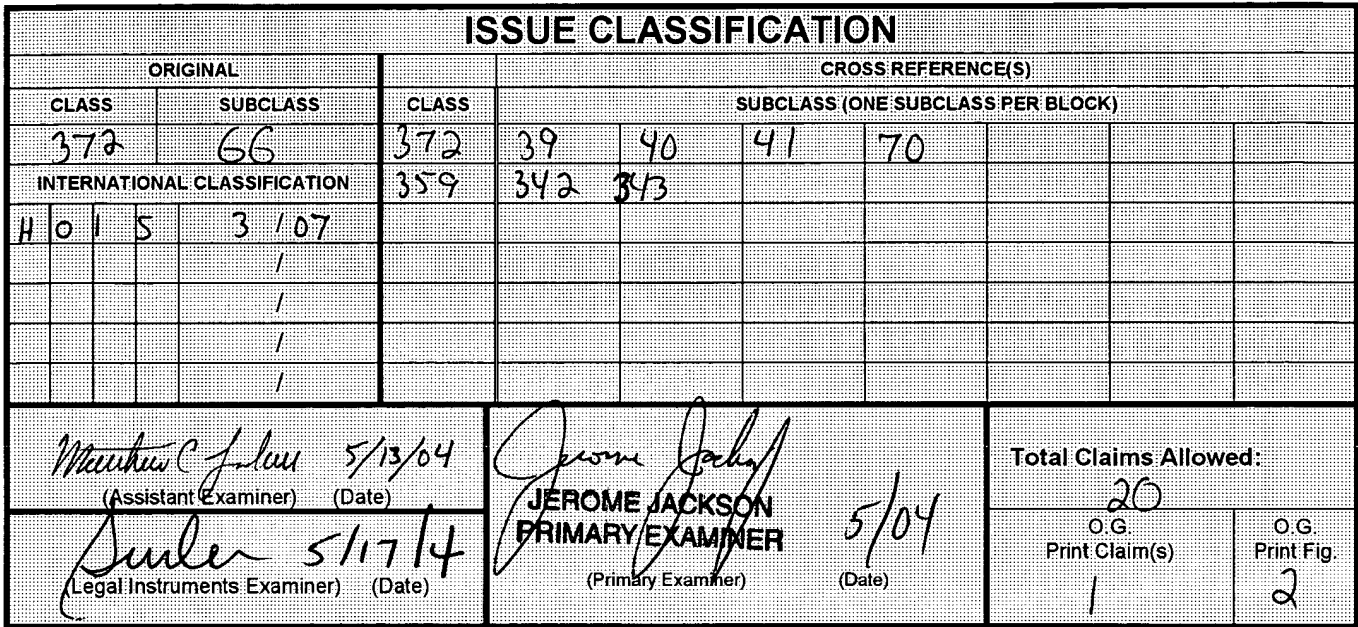 ISSUE CLASSIFICATION
ORIGINAL CROSS REFERENCE(S)
CLASS SUBCLASS CLASS SUBCLASS (ONE SUBCLASS PER BLOCK)
372 66 372 39 40 41 70
INTERNATIONAL CLASSIFICATION 359 342 343
H 0 1 S 3 / 07
/
/
/
/
Matthew C 5/13/04
(Assistant Examiner) (Date)
5/17/4
(Legal Instruments Examiner) (Date)
Jerome Jackson
JEROME JACKSON
PRIMARY EXAMINER
5/04
(Primary Examiner) (Date)
Total Claims Allowed:
20
O.G.
Print Claim(s)
1
O.G.
Print Fig.
2